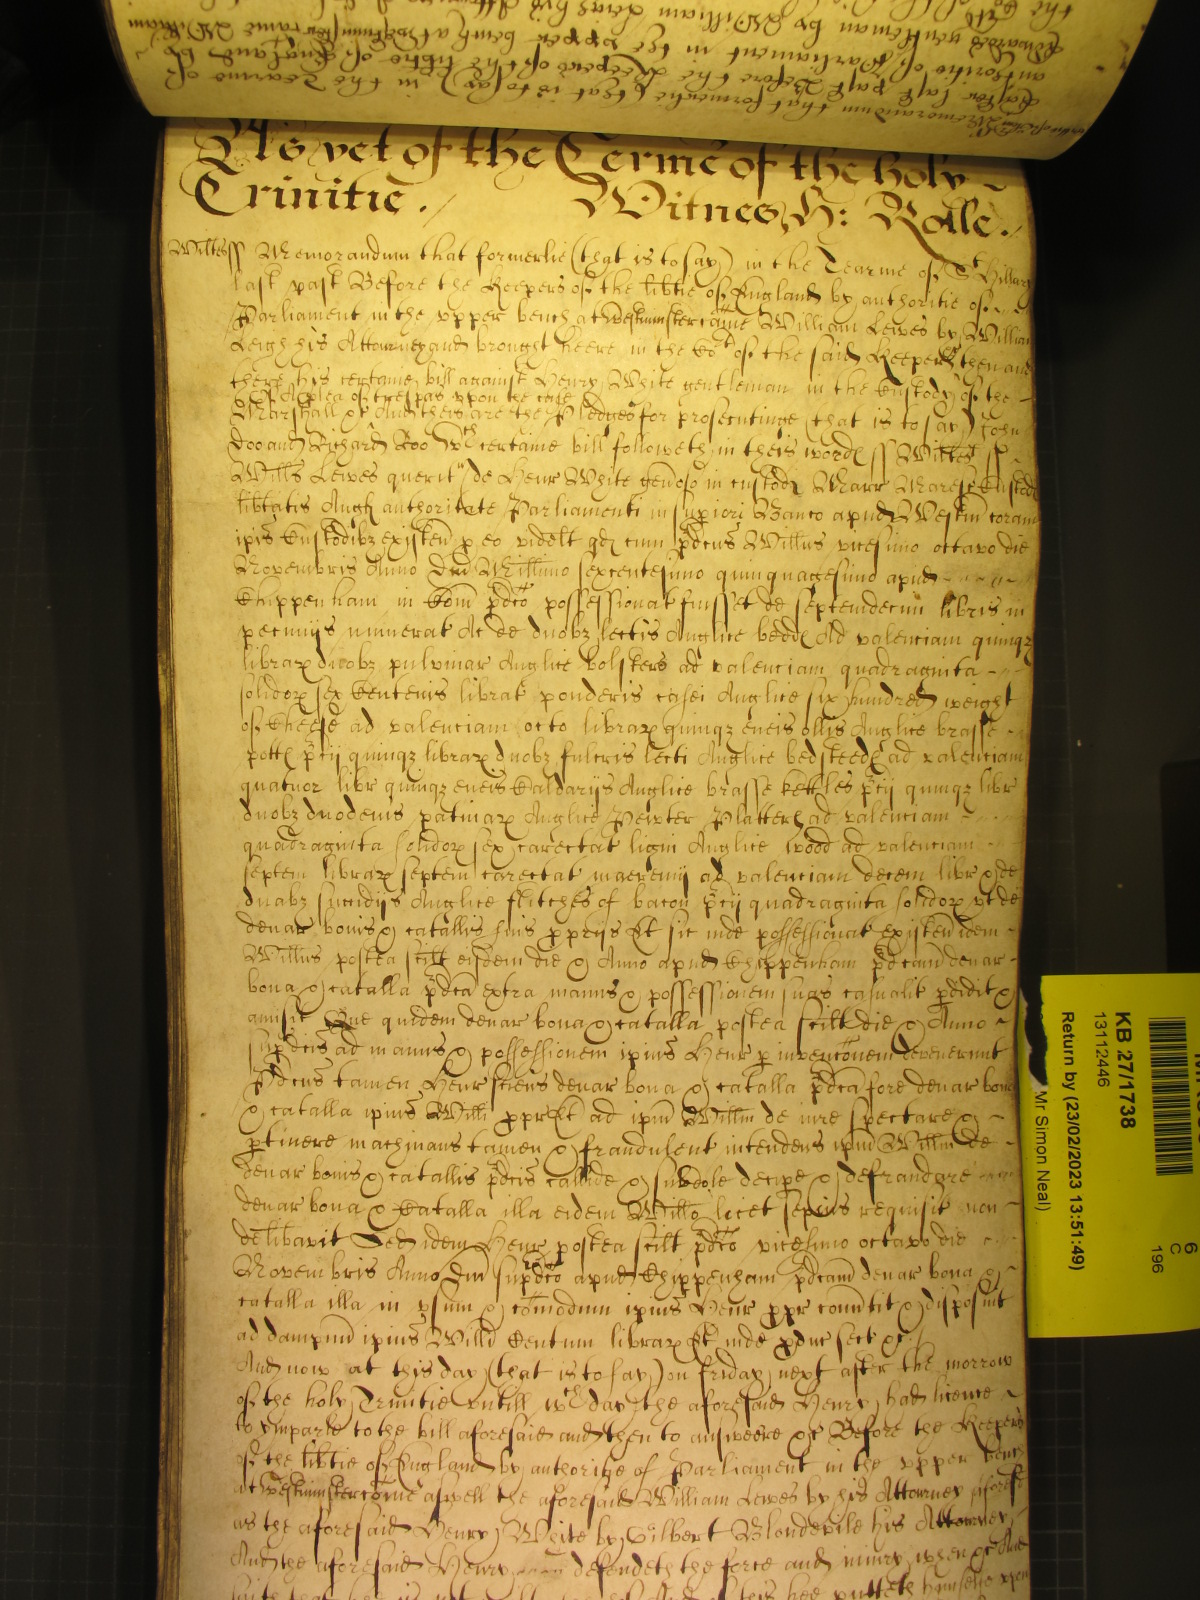 As yet of the Terme of the holy
Trinitie. Witnes H: Rolle.
Wiltess Memorandum that formerlie (that is to say) in the Tearme of St Hillary
last past Before the Keepers of the libtie of England by authoritie of
Parliament in the upper bench at Westminster came William Lewes by William
Leigh his Attourney and brought heere in the Cort of the said Keepers then and
there his certaine bill against Henry White gentleman in the Custody of the
Marshall &c of a plea of trespas upon the case
And theis are the Pledges for prosecutinge (that is to say) John
Doo and Richard Roo wch certaine bill followeth in theis words ss Wiltes ss
Willus Lewes querit de Henr White genoso in custod Marr Maresc Custod
libtatis Angl authoritate Parliamenti in supiori Banco apud Westm coram
ipis Custodibz existen p eo videlt qd cum pdcus Willus vicesimo octavo die
Novembris Anno Dni Millimo sexcentesimo quinquagesimo apud
Chippenham in Com pdco possessionat fuisset de septemdecim libris in
pecuniis numerat Ac de duobz lectis Anglice bedds Ad valenciam quinqz
librar duobz pulvinar Anglice bolsters ad valenciam quadraginta
solidor sex Centenis librat ponderis casei Anglice six hundred weight
of Cheese ad valenciam octo librar quinqz eneis ollis Anglice brasse
potts pcij quinqz librar duobz fulcris lecti Anglice bedsteeds ad valenciam
quatuor libr quinqz eneis Caldarijs Anglice brasse kettles pcij quinqz libr
duobz duodenis patinar Anglice Pewter Platters ad valenciam
quadraginta solidor sex carectat ligni Anglice wood ad valenciam
septem librar septem carectat maeremij ad valenciam decem libr & de
duabz succidijs Anglice flitches of bacon pcij quadraginta solidor ut de
denar bonis & catallis suis pprijs Et sic inde possessionat existen idem
Willus postea scilt eisdem die & Anno apud Chippenham pdcam denar
bona & catalla pdca extra manus & possessionem suas casualit pdidit &
amisit Que quidem denar bona & catalla postea scilt die & Anno
supdcis ad manus & possessionem ipius Henr p invenconem devenerunt
Pdcus tamen Henr sciens denar bona & catalla pdca fore denar bona
& catalla ipius Willi ppr Et ad ipm Willm de iure spectare &
ptinere machinans tamen & fraudulent intendens ipm Willm de
denar bonis & catallis pdcis callide & subdole decipe & defraudare
denar bona & Catalla illa eidem Willo licet sepius requisit non
delibavit Sed idem Henr postea scilt pdco vicesimo octavo die
Novembris Anno Dni supdco apud Chippenham pdcam denar bona &
catalla illa in usum & comodum ipius Henr ppr convtit & disposuit
ad dampnum ipius Willi Centum librar Et inde pduc sect &c
And now at this day (that is to say) on friday next after the morrow
of the holy Trinitie untill wch day the aforesaid Henry had licence
to imparle to the bill aforesaid and then to answeere &c Before the Keepers
of the libtie of England by authoritie of Parliament in the upper bench
at Westminster come aswell the aforesaid William Lewes by his Attorney aforesd
as the aforesaid Henry White by Gilbert Blondevile his Attorney
And the aforesaid Henry defendeth the force and iniury when &c And
KB 27/1738
13112446
Return by (23/02/2023 13:51:49)
Mr Simon Neal)
6
C
196